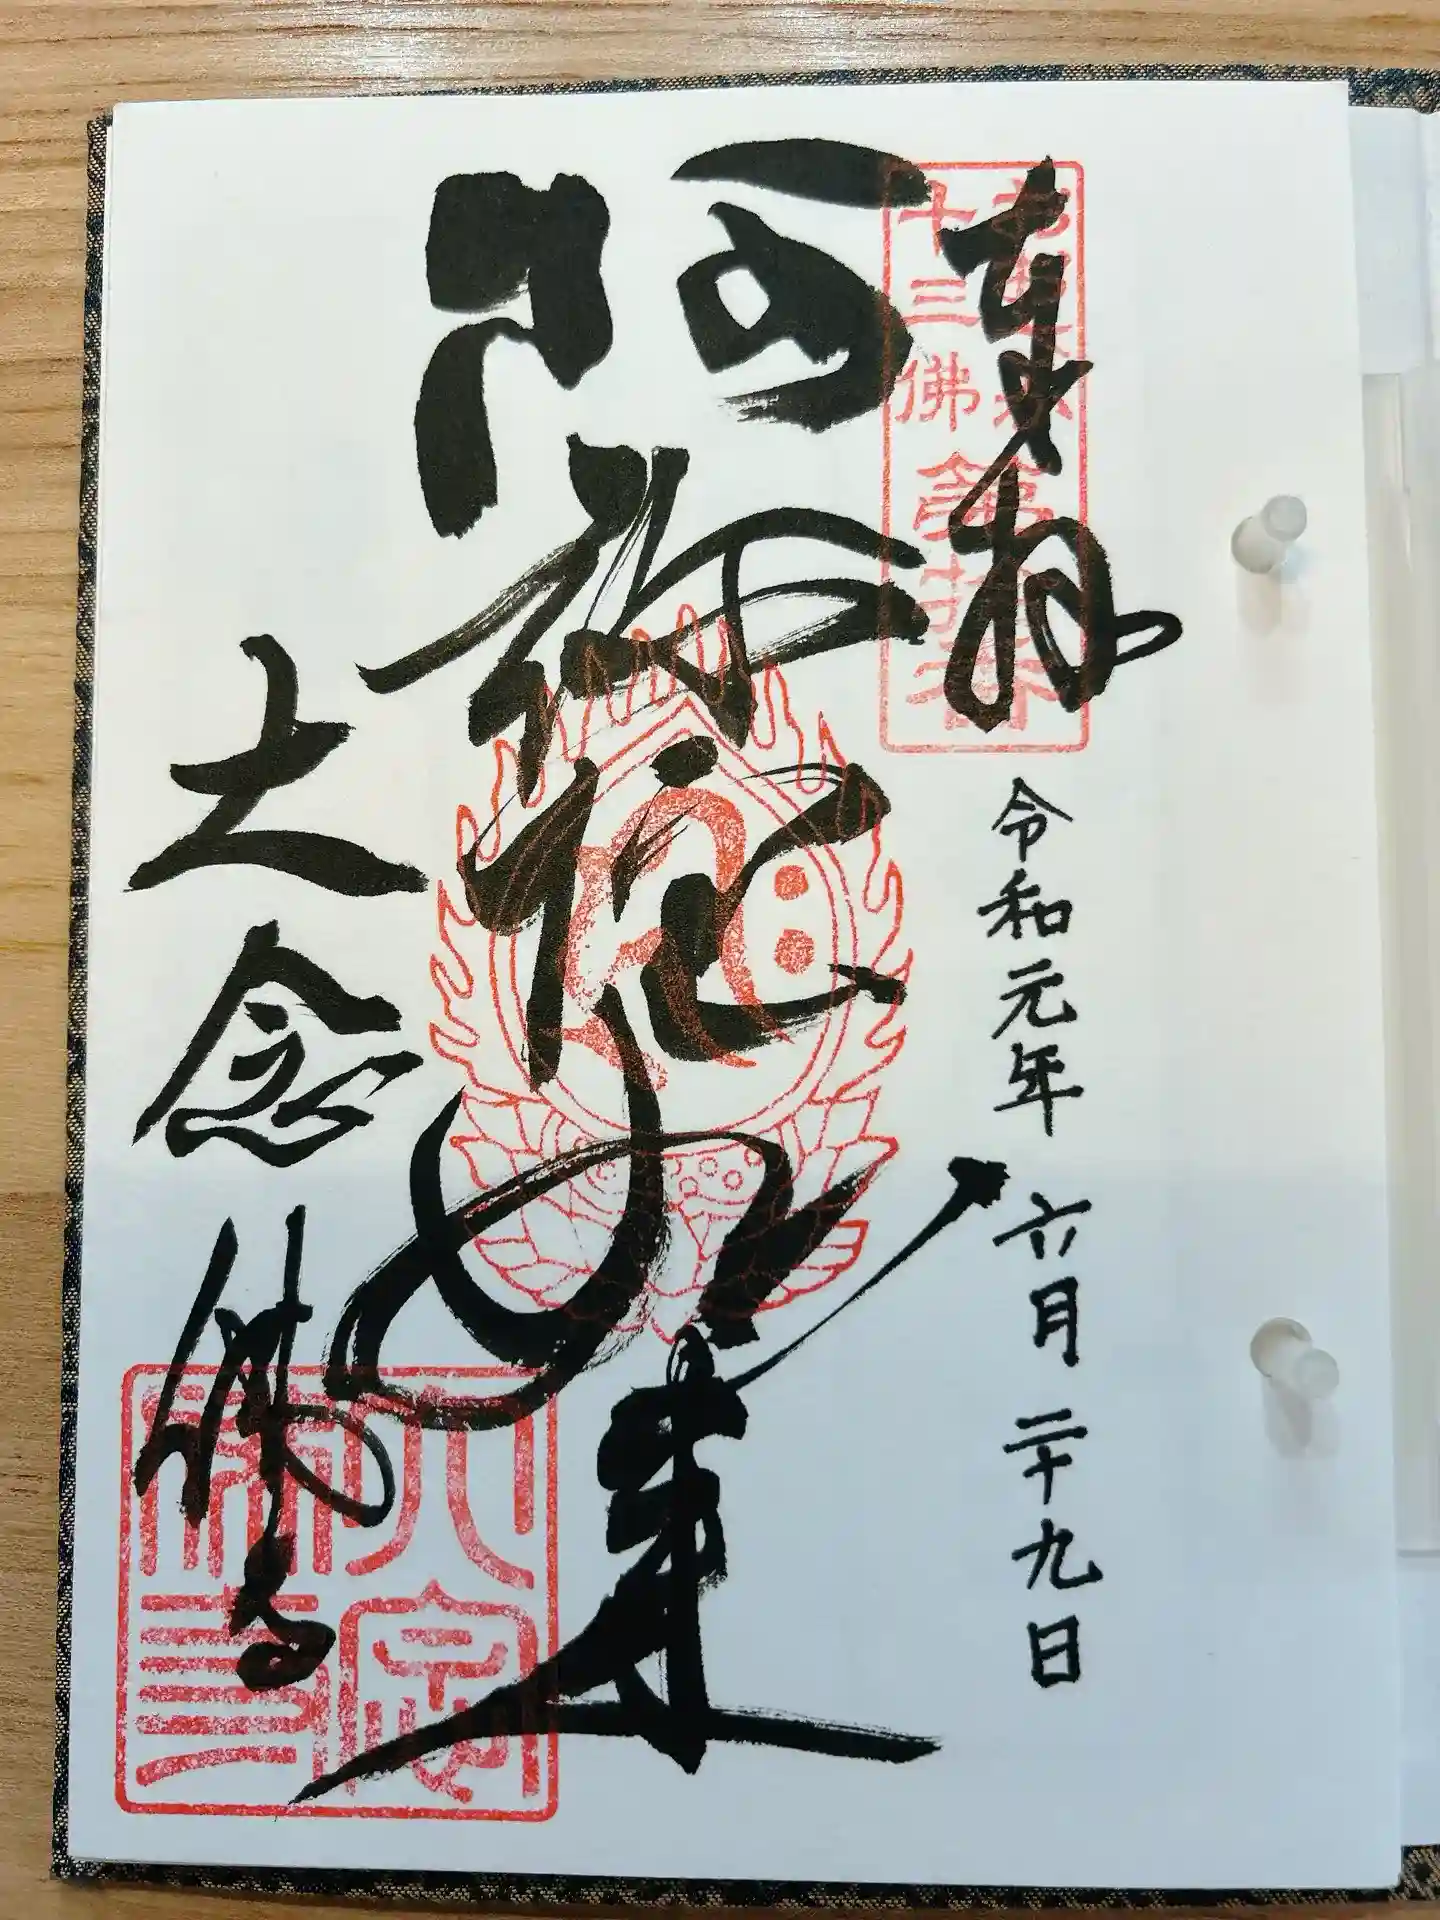 奉拝
十三佛
第拾番
令和元年 六月二十九日
阿弥陀如来
大念佛寺
大念
佛寺